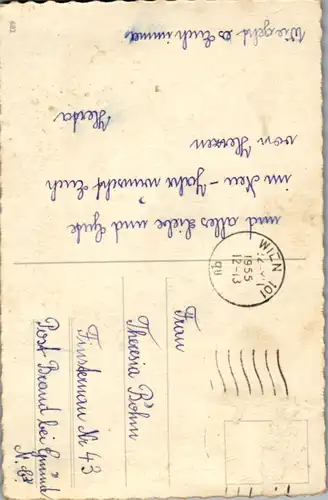 und alles Liebe und Gute
im Neu-Jahr wünscht Euch
von Herzen
Herta
Wie geht es Euch immer
Frau
Theresia Böhm
Finsternau Nr 43
Post Brand bei Gmünd
N.Ö.
WIEN 101
1955
12-13